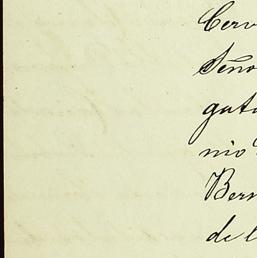 Cerv
Seño
guta
nio
Bern
de l